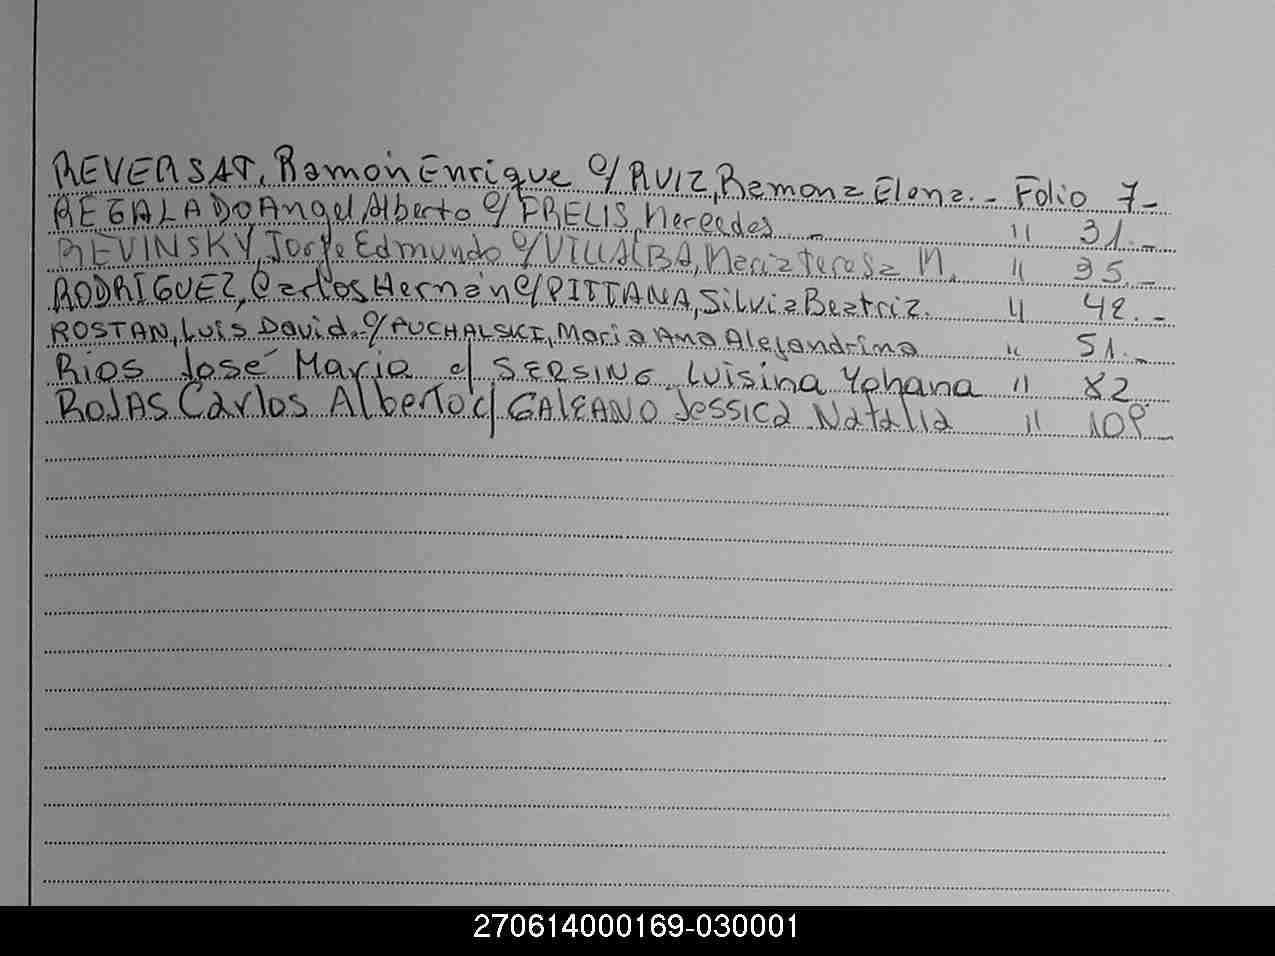 REVERSAT, Ramón Enrique c/ RUIZ, Ramona Elena. - Folio 7-
REGALADO Angel Alberto c/ FRELIS, Mercedes - " 31.-
REVINSKY, Jorge Edmundo c/ VILLALBA, Maria teresa M. " 35.-
RODRIGUEZ, Carlos Hernán c/ PITTANA, Silvia Beatriz. " 42.-
ROSTAN, Luis David.- c/ PUCHALSKI, Maria Ana Alejandrina " 51.-
Rios José Maria c/ SERSING Luisina Yohana " 82
ROJAS Carlos Alberto c/ GALEANO Jessica Natalia "
270614000169-030001